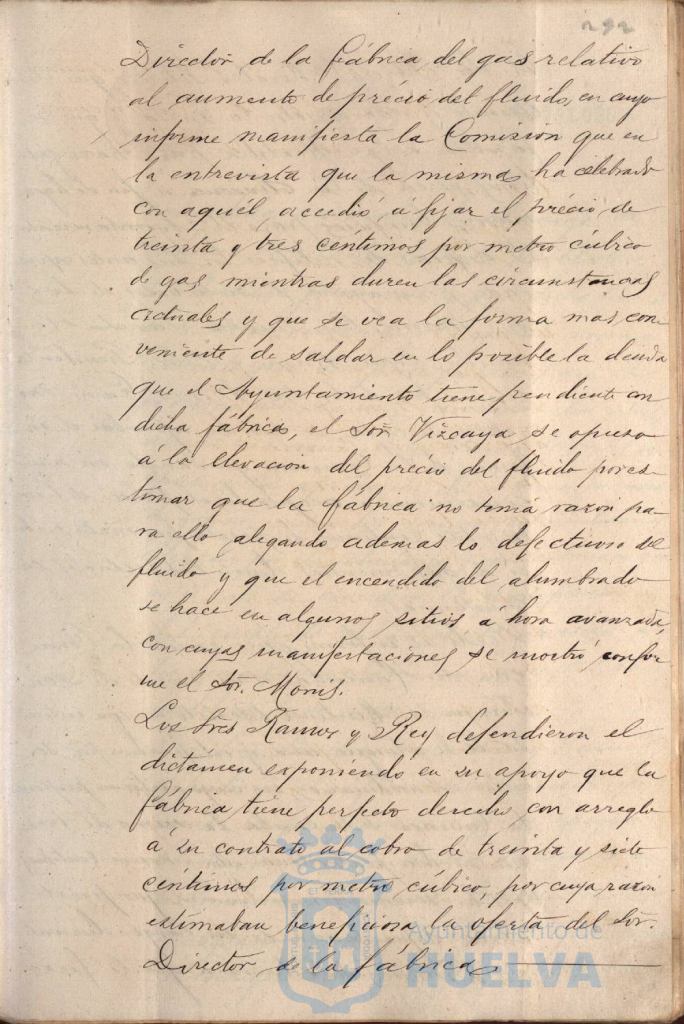 292
Director de la fábrica del gas relativo
al aumento de précio del fluido, en cuyo
informe manifiesta la Comisión que en
la entrevista que la misma ha celebrado
con aquél, accedió á fijar el précio de
treinta y tres céntimos por metro cúbico
de gas mientras duren las circunstancias
actuales y que se vea la forma mas con
veniente de saldar en lo posible la deuda
que el Ayuntamiento tiene pendiente con
dicha fábrica, el Sor. Vizcaya se opuso
á la elevación del précio del fluido por es-
timar que la fábrica no tenía razón pa-
ra ello, alegando ademas lo defectuoso del
fluido y que el encendido del alumbrado
se hace en algunos sitios á hora avanzada,
con cuyas manifestaciones se mostró confor
me el Sor. Monís.
Los Sres Ramos y Rey defendieron el
dictámen exponiendo en su apoyo que la
fábrica tiene perfecto derecho con arreglo
á su contrato al cobro de treinta y siete
céntimos por metro cúbico, por cuya razón
estimaban beneficiosa la oferta del Sor.
Director de la fábrica
Ayuntamiento de
HUELVA